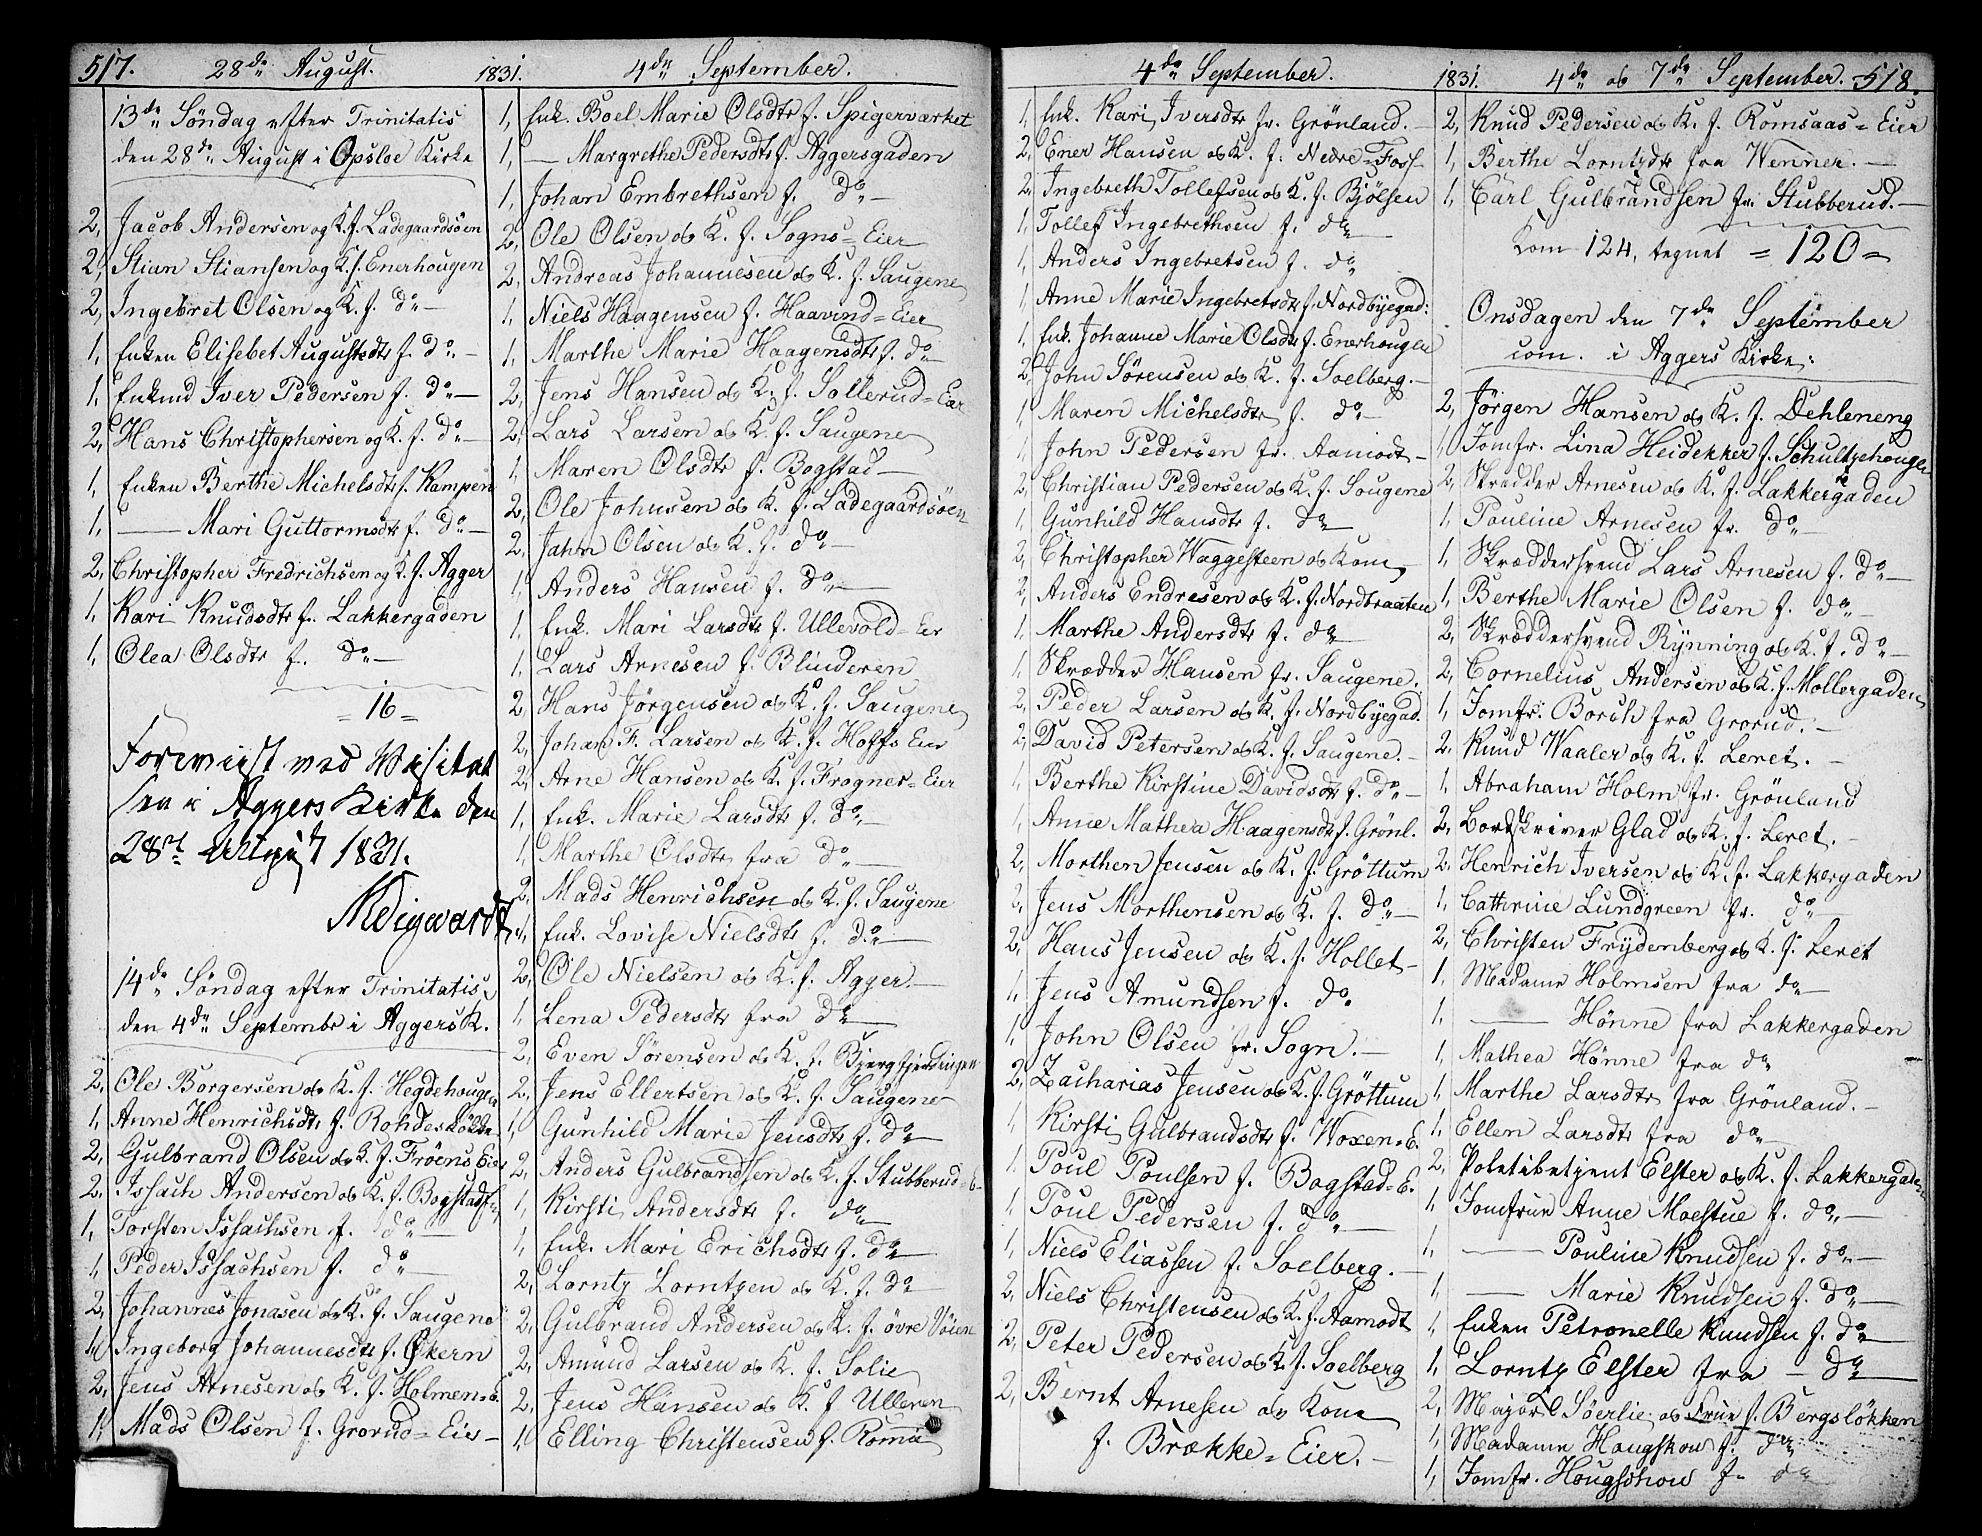 517. 28de August. 1831. 4de September.
13de Søndag efter Trinitatis
den 28de August i Opsloe Kirke
2, Jacob Andersen og K. f. Ladegaardsöen
2, Stian Stiansen og K. f. Enerhougen
2, Ingebret Olsen og K. f. do —
1, Enken Elisebet Augustsdtr f. do —
1, Enkmd Iver Pedersen f. do —
2, Hans Christophersen og K. f. do —
1, Enken Berthe Michelsdtr f. Kampen
1, — Mari Guttormsdtr f. do —
2, Christopher Fredrichsen og K. f. Agger
1, Kari Knudsdtr f. Lakkergaden
1, Olea Olsdtr f. do —
= 16 =
Foreviist ved Visitat
sen i Aggers Kirke den
28de August 1831.
14de Søndag efter Trinitatis,
den 4de Septembr i Aggers K.
2, Ole Borgersen og K. f. Hegdehougen
1, Anne Henrichsdtr f. Rohdeslökke
2, Gulbrand Olsen og K. f. Fröens Eier
2, Issach Andersen og K. f. Bogstads
1, Torsten Issachsen f. do —
1, Peder Issachsen f. do —
2, Johannes Jonasen og K. f. Saugene
1, Ingeborg Johannesdtr f. Økern
2, Jens Arnesen og K. f. Holmen=E.
1, Mads Olsen f. Grorud=Eier —
1, Enk. Boel Marie Olsdtr f. Spigerværket
1, — Margrethe Pedersdtr f. Aggersgaden
1, Johan Embrethsen f. do —
2, Ole Olsen og K. f. Sogns=Eier
2, Andreas Johannesen og K. f. Saugene
1, Niels Haagensen f. Haavind=Eier
1, Marthe Marie Haagensdtr f. do —
2, Jens Hansen og K. f. Sollerud=Eier
2, Lars Larsen og K. f. Saugene
1, Maren Olsdtr f. Bogstad —
2, Ole Johnsen og K. f. Ladegaardsöen
2, Jahn Olsen og K. f. do —
1, Anders Hansen f. do —
1, Enk. Mari Larsdtr f. Ullevold=Eier
1, Lars Arnesen f. Blinderen
2, Hans Jörgensen og K. f. Saugene
2, Johan F. Larsen og K. f. Hoffs Eier
2, Arne Hansen og K. f. Frogner=Eier
1, Enk. Marie Larsdtr f. do —
1, Marthe Olsdtr fra do —
2, Mads Henrichsen og K. f. Saugene
1, Enk. Lovise Nielsdtr f. do —
2, Ole Nielsen og K. f. Agger. —
1, Lena Pedersdtr fra do
2, Even Sörensen og K. f. Bjergsjerdingen
2, Jens Ellertsen og K. f. Saugene
1, Gunhild Marie Jensdtr f. do —
2, Anders Gulbrandsen og K. f. Stubberud=E.
1, Kirsti Andersdtr f. do
1, Enk. Mari Erichsdtr f. do —
2, Lorntz Lorntzen og K. f. do
2, Gulbrand Andersen og K. f. övre Vöien
2, Amund Larsen og K. f. Solie
2, Jens Hansen og K. f. Ulleren
1, Elling Christensen f. Romsa
4de September. 1831. 4de og 7de September. 518.
1, Enk. Kari Iversdtr fr. Grönland. —
2, Ener Hansen og K. f. Nedre=Foss —
2, Ingebreth Tollefsen og K. f. Bjölsen
1, Tollef Ingebrethsen f. do
1, Anders Ingebretsen f. do
1, Anne Marie Ingebretsdtr f. Nordbyegad:
1, Enk. Johanne Marie Olsdtr f. Enerhougen
2, John Sörensen og K. f. Soelberg. —
1, Maren Michelsdtr f. do —
1, John Pedersen fr. Aamodt —
2, Christian Pedersen og K. f. Sougene
1, Gunhild Hansdtr f. do
2, Christopher Waggesteen og Kone
2, Anders Endresen og K. f. Nordbraaten
1, Marthe Andersdtr f. do
1, Skrædder Hansen fr. Saugene.
2, Peder Larsen og K. f. Nordbyegad.
2, David Petersen og K. f. Saugene. —
1, Berthe Kirstine Davidsdtr f. do —
1, Anne Mathea Haagensdtr f. Grönl.
2, Morthen Jensen og K. f. Gröttum
2, Jens Morthensen og K. f. do —
2, Hans Jensen og K. f. Hollet —
1, Jens Amundsen f. do
1, John Olsen fr. Sogn. —
2, Zacharias Jensen og K. f. Gröttum
1, Kirsti Gulbrandsdtr f. Woxen=E.
1, Poul Poulsen f. Bogstad=E.
1, Poul Pedersen f. do —
1, Niels Eliassen f. Soelberg. —
2, Niels Christensen og K. f. Aamodt
2, Peter Pedersen og K. f. Soelberg
2, Bernt Arnesen og Kone
f. Brække=Eier. —
2, Knud Pedersen og K. f. Romsaas=Eier
1, Berthe Lorntzdtr fra Wenner. —
1, Carl Gulbrandsen fra Stubberud. —
Kom 124, tegnet = 120 =
Onsdagen den 7de September
com. i Aggers Kirke:
2, Jörgen Hansen og K. f. Dehleneng
1, Jomfr. Lina Heidekker f. Schultzehougen
2, Skrædder Arnesen og K. f. Lakkergaden
1, Pauline Arnesen fr. do —
1, Skræddersvend Lars Arnesen f. do —
1, Berthe Marie Olsen f. do —
2, Skræddersvend Rynning og K. f. do —
2, Cornelius Andersen og K. f. Mollergaden
1, Jomfr. Borch fra Grorud. —
2, Knud Waaler og K. f. Leret. —
1, Abraham Holm fr. Grönland
2, Bordskriver Glad og K. f. Leret. —
2, Henrich Iversen og K. f. Lakkergaden
1, Cathrine Lundgreen fr. do —
2, Christen Frydenberg og K. f. Leret
1, Madame Holmsen fra do
1, — Hönne fra Lakkergaden
1, Mathea Hönne fra do
1, Marthe Larsdtr fra Grönland. —
1, Ellen Larsdtr fra do
2, Politibetjent Elster og K. f. Lakkergaden
1, Jomfrue Anne Moestue f. do —
1, — Pouline Knudsen f. do —
1, — Marie Knudsen f. do —
1, Enken Petronelle Knudsen f. do
1, Lorntz Elster fra — do
2, Major Söerlie og Frue f. Bergslökken
1, Madame Hougskow f. do
1, Jomfr. Hougskow f. do